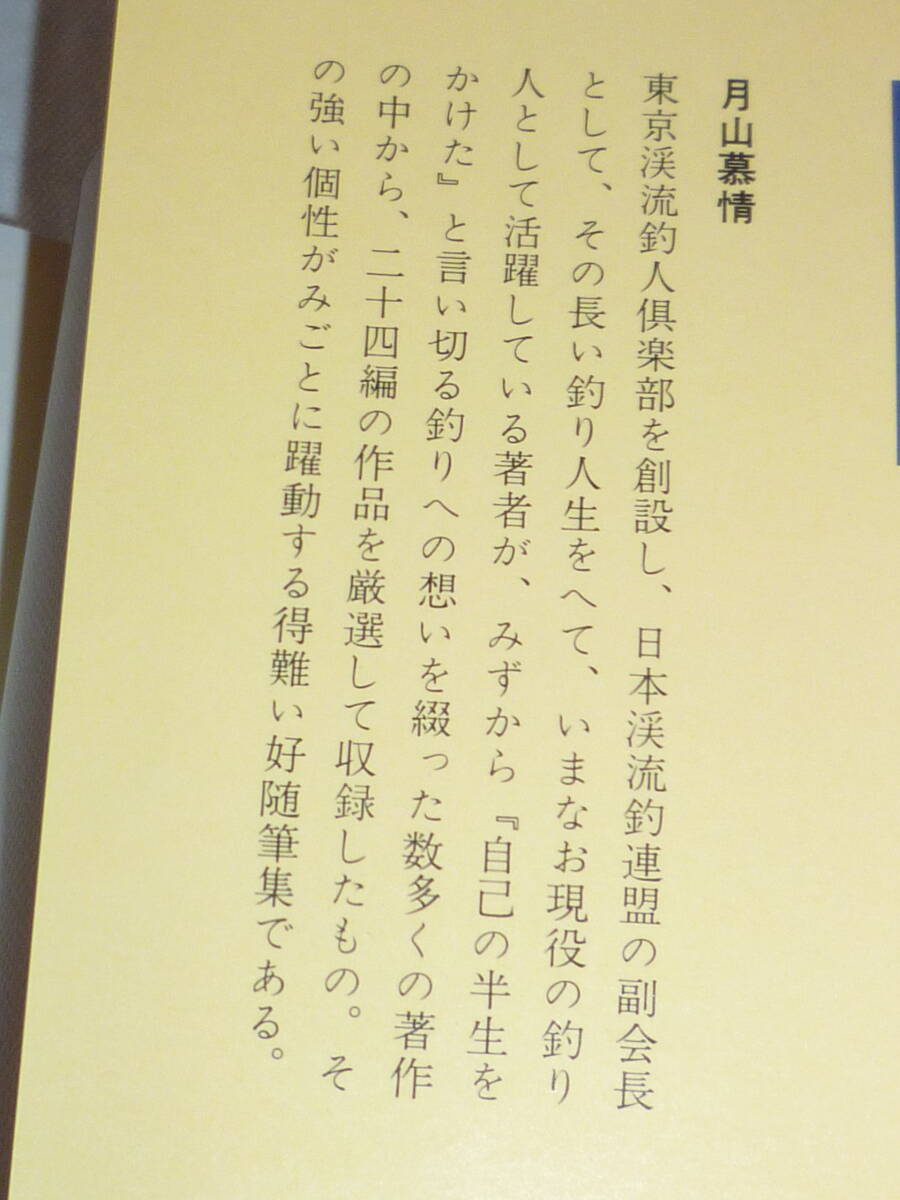 月山慕情
東京渓流釣人倶楽部を創設し、日本渓流釣連盟の副会長
として、その長い釣り人生をへて、いまなお現役の釣り
人として活躍している著者が、みずから『自己の半生を
かけた』と言い切る釣りへの想いを綴った数多くの著作
の中から、二十四編の作品を厳選して収録したもの。そ
の強い個性がみごとに躍動する得難い好随筆集である。